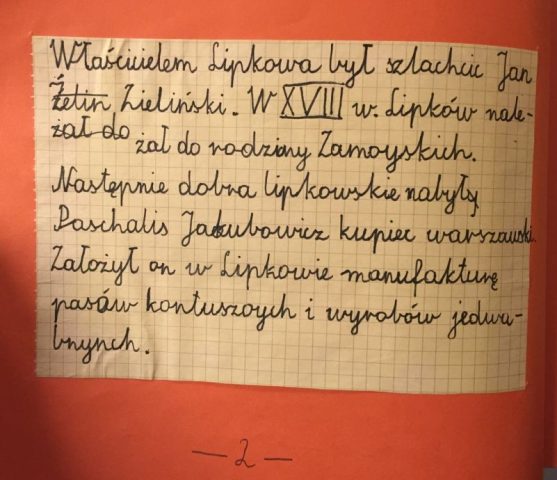 Właściielem Lipkowa był szlachcic Jan
Żelin Zieliński. W XVIII w. Lipków nale-
żał do żał do rodziny Zamoyskich.
Następnie dobra lipkowskie nabył
Paschalis Jakubowicz kupiec warszawski.
Założył on w Lipkowie manufakturę
pasów kontuszoych i wyrobów jedwa-
bnynch.
— 2 —